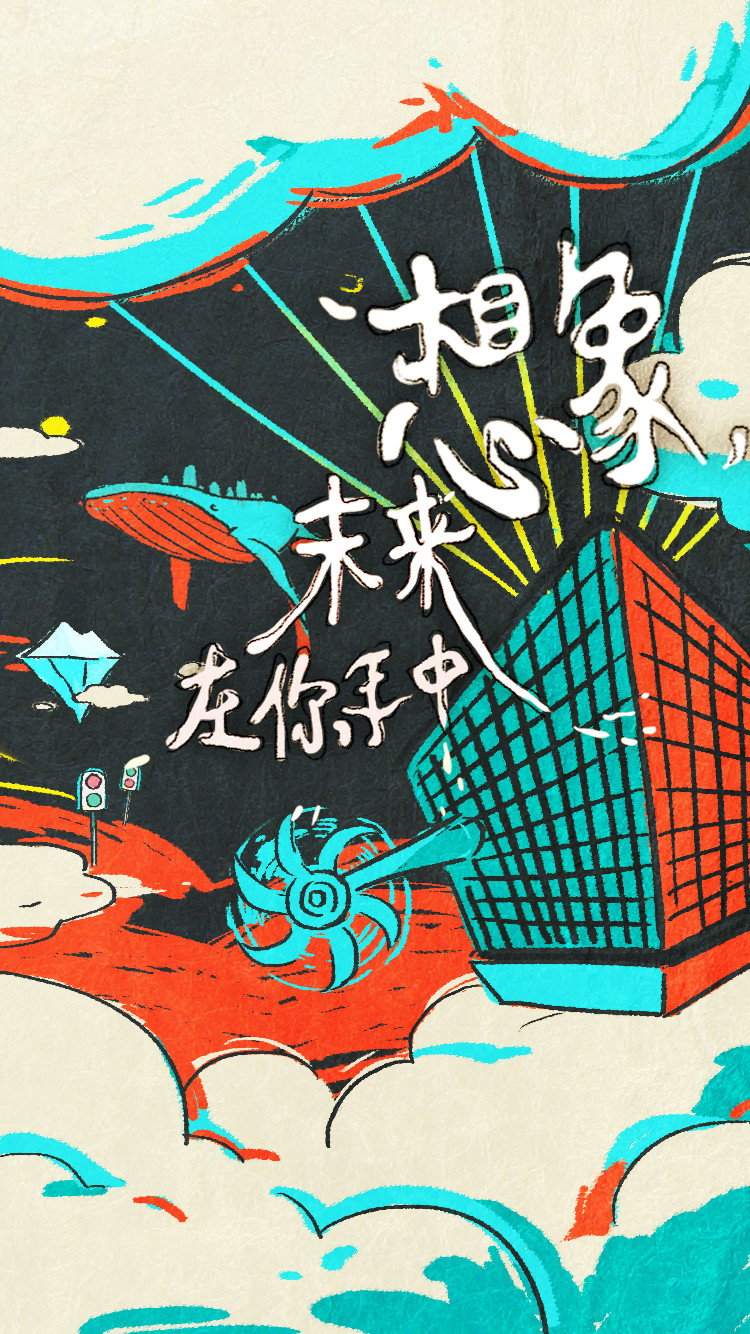 想象，
未来
在你手中